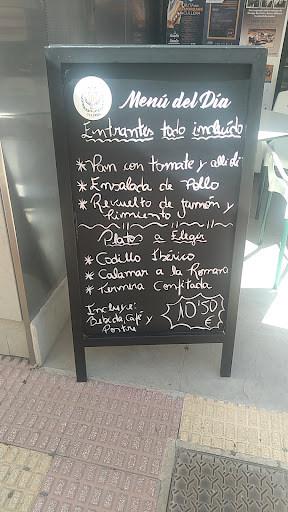 Menú del Día
Entrantes todo incluído
* Pan con tomate y alli oli
* Ensalada de Pollo
* Revuelto de jamón y
Pimiento
Platos a Elegir
* Codillo Ibérico
* Calamar a la Romana
* Ternera Confitada
Incluye:
Bebida, Café y
Postre
10'50
€